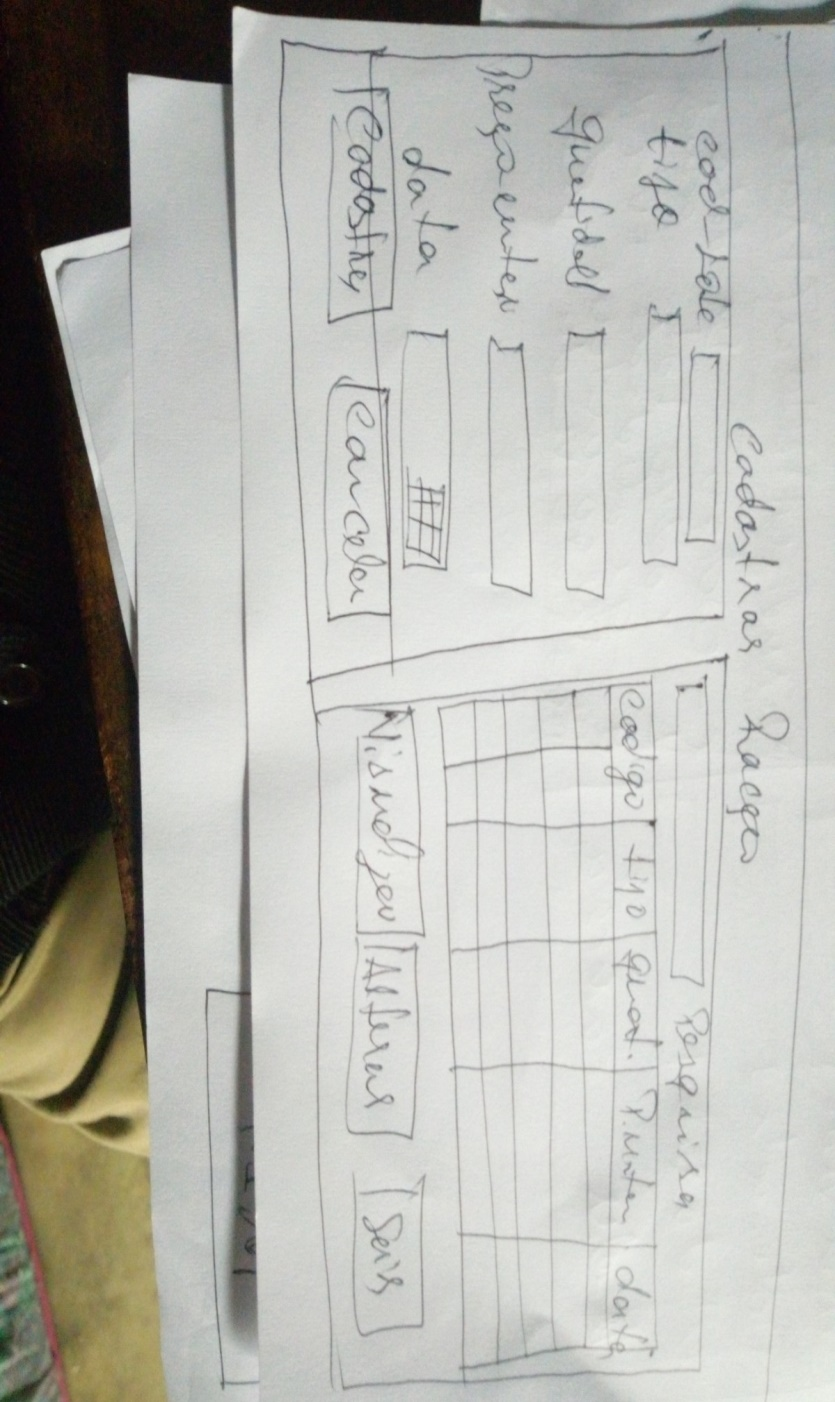 Cadastrar Racção
cod-rac
tipo
quatidad
Preçounter
data
Cadastrar Cancelar
Pesquisa
codigo tipo quat. P.unter data
Visualizar Alterar Sair